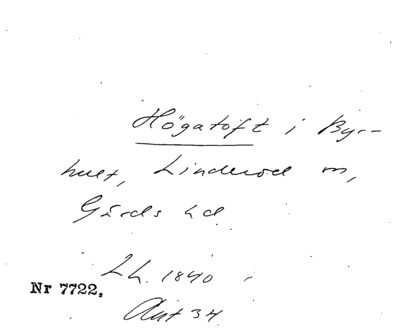 Högatoft i Byr-
hult, Linderöd sn,
Gärds hd
Lh. 1840
Nr 7722.
Akt 34